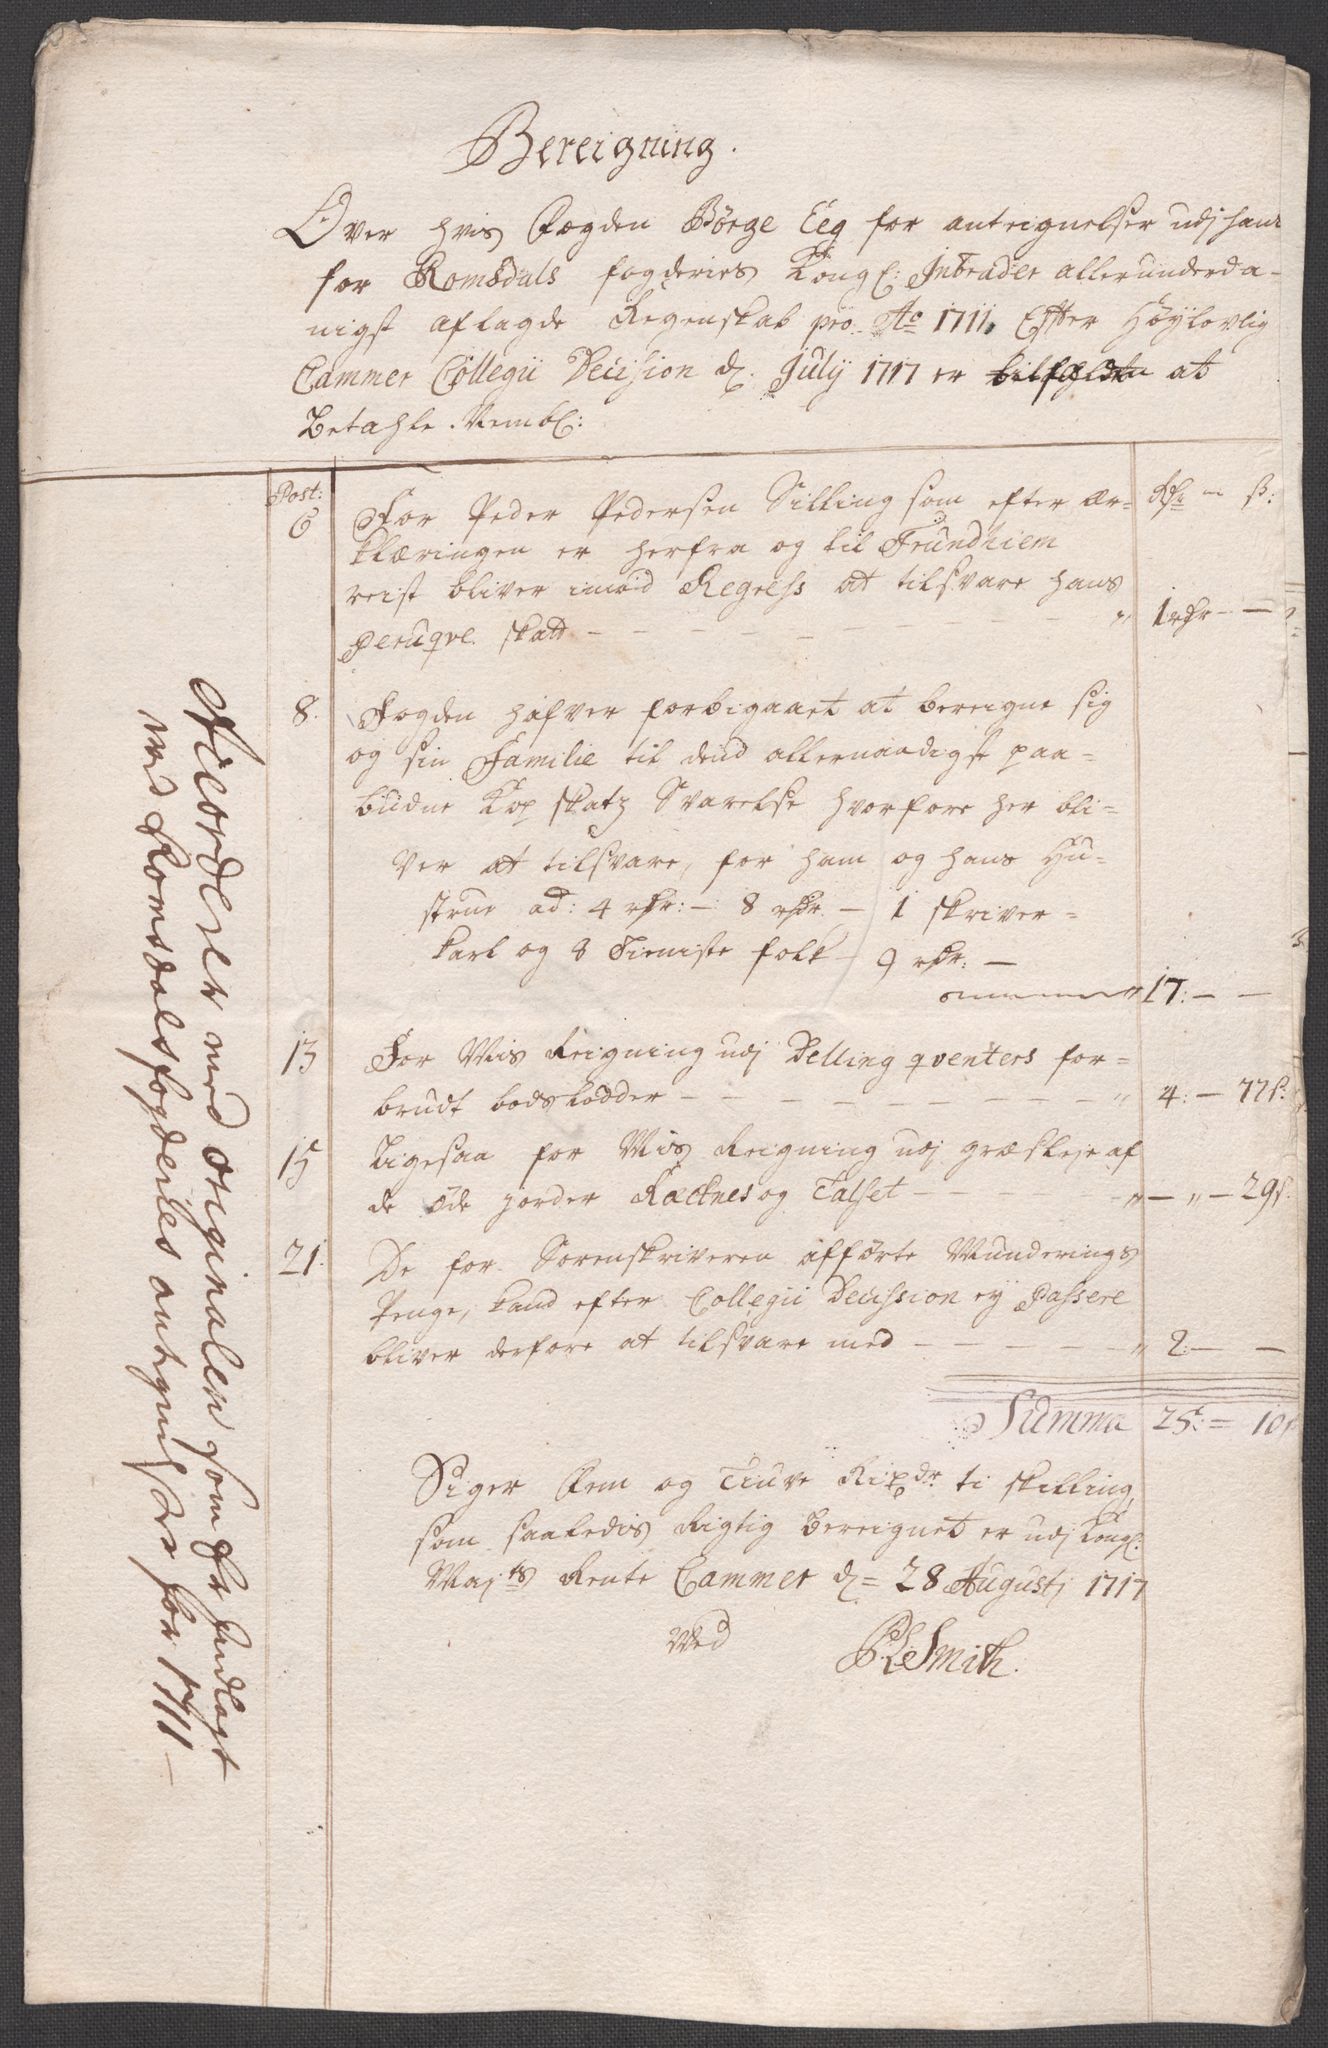 Bereigning.
Over hvis Fogden Börge Eeg for anteignelser udj hans
for Romsdals fogderies Kongl: Intrader allerunderda-
nigst aflagde Regenskab pro Ao 1711, Efter Høylovlig
Cammer Collegii Decision d. July 1717 er at
Betahle. Nembl:
Post: Rdr ß:
6 For Peder Pedersen Silling som efter ær-
klæringen er herfra og til Trundhiem
reist bliver imod Regress at tilsvare hans
Peruqve skatt - - - - - - - - " 1 rdr - -
8. Fogden hafver forbigaaet at bereigne sig
og sin Familie til dend allernaadigst paa-
budne Kop skatz Svarelse hvorfore her bli-
ver at tilsvare, for ham og hans Hu-
strue ad: 4 rdr: - 8 rdr. - 1 skriver-
karl og 8 Tieniste folk - 9 rdr: -
" 17: - -
13 For Mis Reigning udj Delling qventers for-
brudt bods lodder - - - - - - - - " 4: - 77 ß:
15 Ligesaa for Mis Reigning udj græsleje af
de øde gorder Rættnes og Talset - - - - " - " - 29 ß.
21. De for Sorenskriveren afførte Munderings
Penge, kand efter Collegii Decission ey Passere
bliver derfore at tilsvare med - - - - - " 2: - -
Summa 25: = 10 ß
Siger Fem og Tiuve Rixdr. ti skilling,
som saaledis Rigtig bereignet er udj Kongl:
Majts Rente Cammer d= 28 Augustj 1717
Ved PLSmith.
med originalen som er indlagt
ved Romsdals fogderies antegnelser for 1711 -